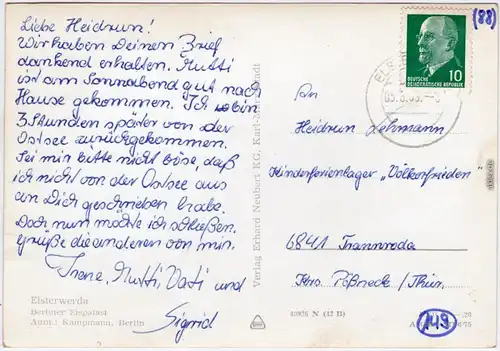 Liebe Heidrun!
Wir haben Deinen Brief
dankend erhalten. Mutti
ist am Sonnabend gut nach
Hause gekommen. Ich bin
3 Stunden später von der
Ostsee zurückgekommen.
Sei mir bitte nicht böse, daß
ich nicht von der Ostsee aus
an Dich geschrieben habe.
Doch nun möchte ich schließen.
Grüße die anderen von mir.
Irene, Mutti, Vati und
Sigrid
Elsterwerda
Berliner Eispalast
Aufn.: Kampmann, Berlin
Verlag Erhard Neubert KG, Karl-Marx-Stadt
40926 N (12 B)
(88)
10
DEUTSCHE
DEMOKRATISCHE REPUBLIK
An
Heidrun Lehmann
Kinderferienlager „Völkerfrieden"
6841 Trannroda
Krs. Pößneck / Thür.
149